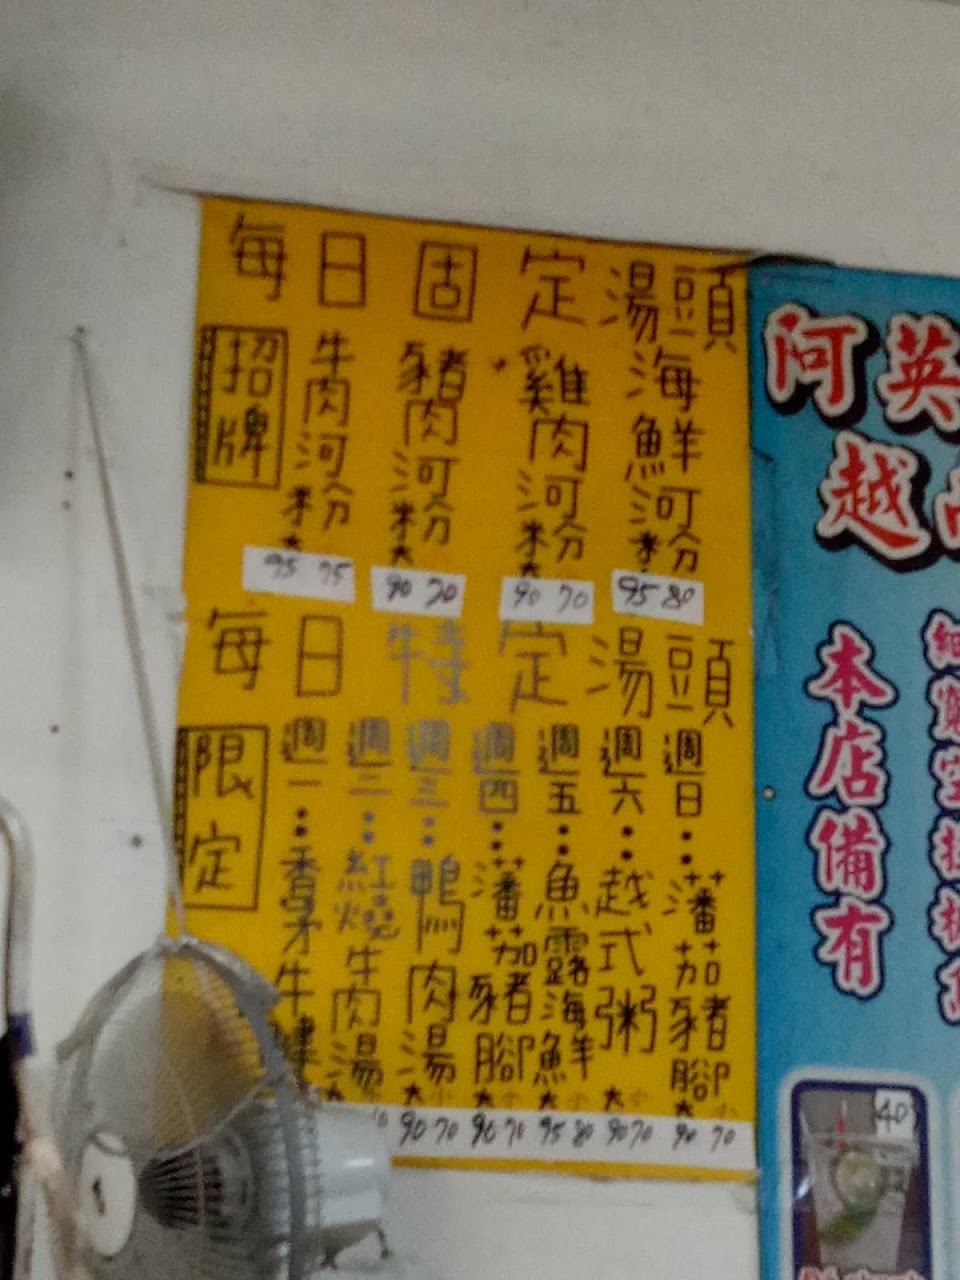 每日固定湯頭
招牌
牛肉河粉
豬肉河粉
雞肉河粉
海鮮河粉
大
大
大
95 75
90 70
90 70
95 80
每日特定湯頭
限定
週一：香茅牛腱
週二：紅燒牛肉湯 大
週三：鴨肉湯 大 小
週四：蕃茄豬腳 大 小
週五：魚露海鮮 大 小
週六：越式粥 大 小
週日：蕃茄豬腳 大 小
90 70
90 70
95 80
90 70
90 70
阿英
越
本店備有
40